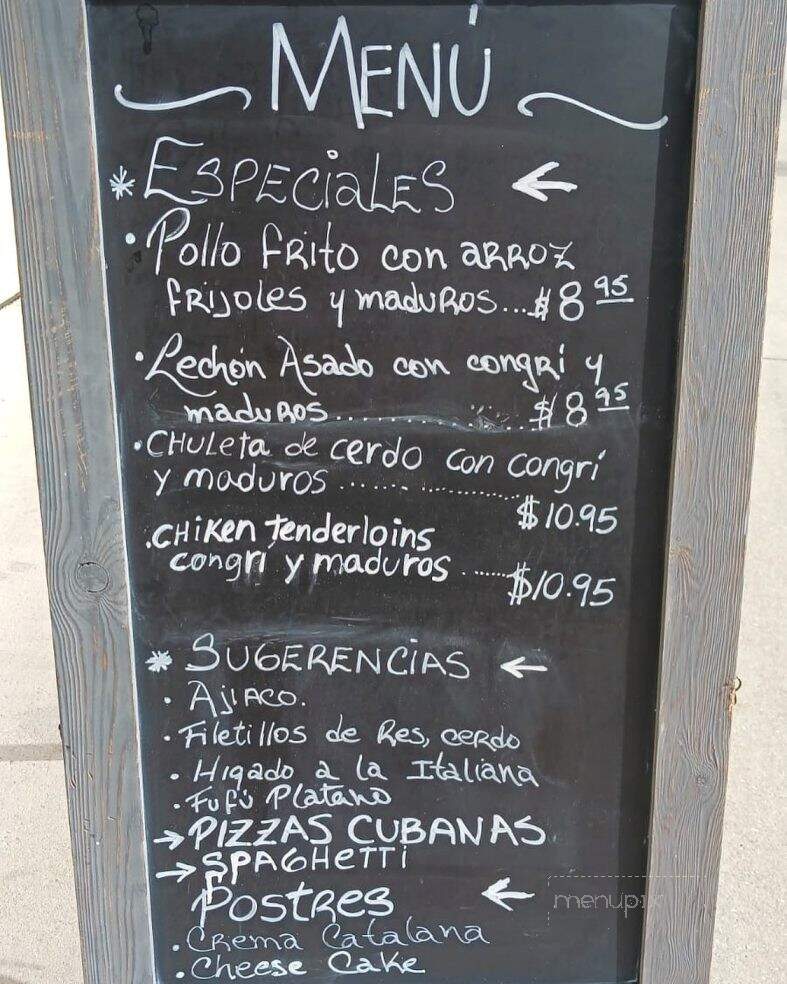 MENÚ
* ESPECIALES ←
• Pollo FRITO con ARROZ
FRIJOLES y maduros...$8 95
• Lechón Asado con congrí y
maduros..............$8 95
• CHULETA de cerdo con congrí
y maduros ..................
$10.95
. CHIKEN tenderloins
congrí y maduros ........
$10.95
* SUGERENCIAS ←
• AJIACO.
• Filetillos de Res, cerdo
• Higado a la Italiana
• Fufú Platano
→ PIZZAS CUBANAS
→ SPAGHETTI
Postres ←
• Crema Catalana
• Cheese Cake
menupix